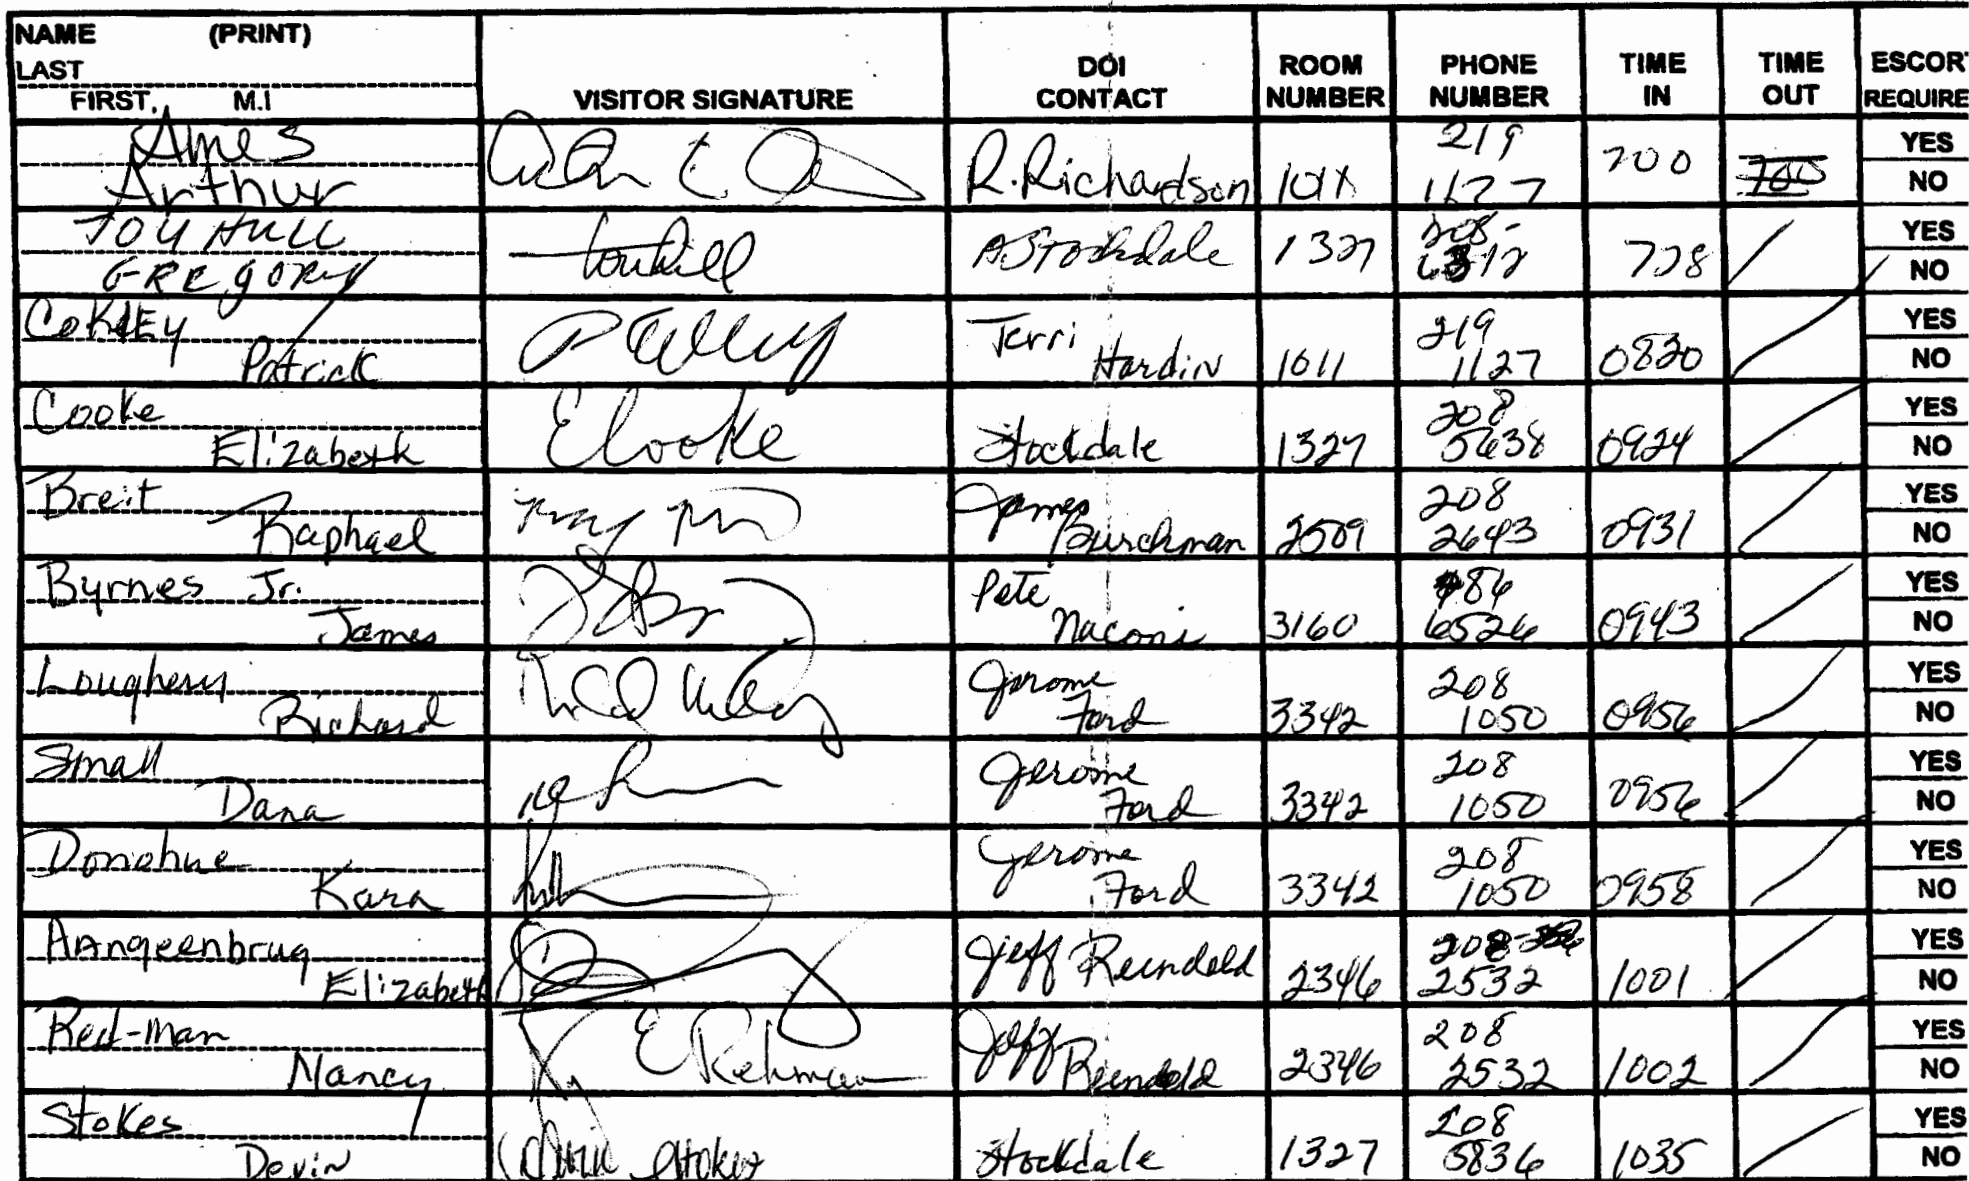 NAME (PRINT)
LAST
FIRST, M.I
VISITOR SIGNATURE
DOI CONTACT
ROOM NUMBER
PHONE NUMBER
TIME IN
TIME OUT
ESCORT REQUIRE
Ames
Arthur
R. Richardson
219
1127
700
700
YES
NO
TOUHILL
GREGORY
Touhill
A Stockdale
1327
208-
728
YES
NO
Patrick
Terri
Hardin
1011
219
1127
0820
YES
NO
Cooke
Elizabeth
ECooke
Stockdale
1327
208
5638
0924
YES
NO
Breit
Raphael
James
Burckman
2509
208
2643
0931
YES
NO
Byrnes Jr.
James
Pete
Naconi
3160
486
6526
0943
YES
NO
Loughery
Richard
Jerome
Ford
3342
208
1050
0956
YES
NO
Small
Dana
Jerome
Ford
3342
208
1050
0956
YES
NO
Donohue
Kara
Jerome
Ford
3342
208
1050
0958
YES
NO
Aangeenbrug
Elizabeth
Jeff
2346
208
2532
1001
YES
NO
Red-man
Nancy
E Rehman
Jeff
2346
208
2532
1002
YES
NO
Stokes
Devin
Devin Stokes
Stockdale
1327
208
5836
1035
YES
NO